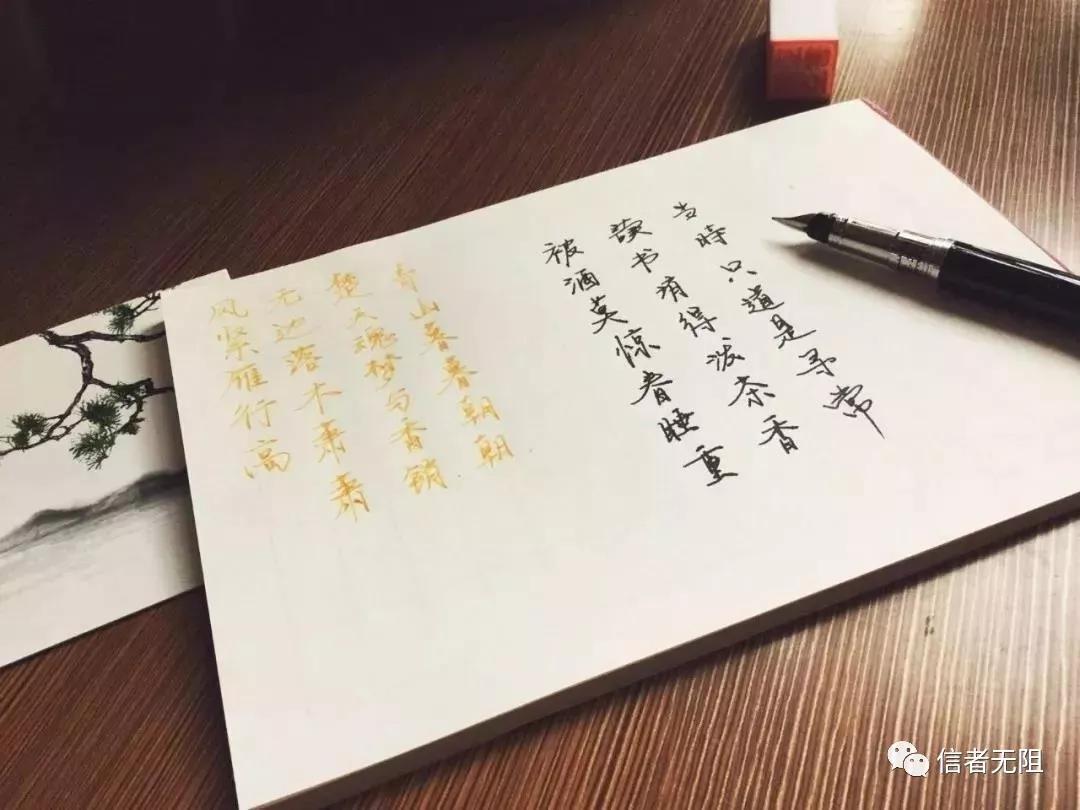 风紧雁行高
无边落木萧萧
楚天魂梦与香销
青山暮暮朝朝
被酒莫惊春睡重
读书消得泼茶香
当時只道是寻常
信者无阻